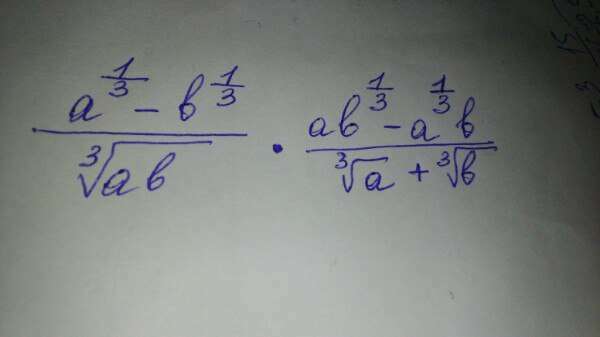 a^(1/3) - b^(1/3) / ∛(ab) · ab^(1/3) - a^(1/3)b / ∛a + ∛b